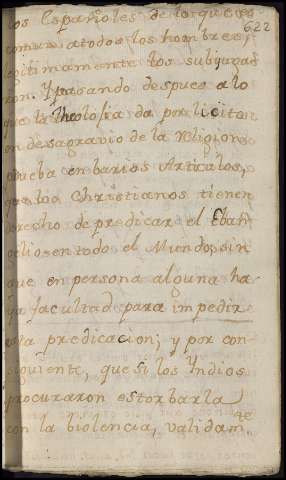 622
os Españoles de lo que es
comun a todos los hombres, y
legitimamente los subyuga
ron. Y pasando despues a lo
que la Theolofia da por licito
en desagravio de la Religion
prueba en barios Articulos,
que los Christianos tienen
derecho de predicar el Eban
gelio en todo el Mundo, sin
que en persona alguna ha
ya facultad para impedir
esta predicacion; y por con
siguiente, que si los Yndios
procuraron estorbarla
con la biolencia, validam.te